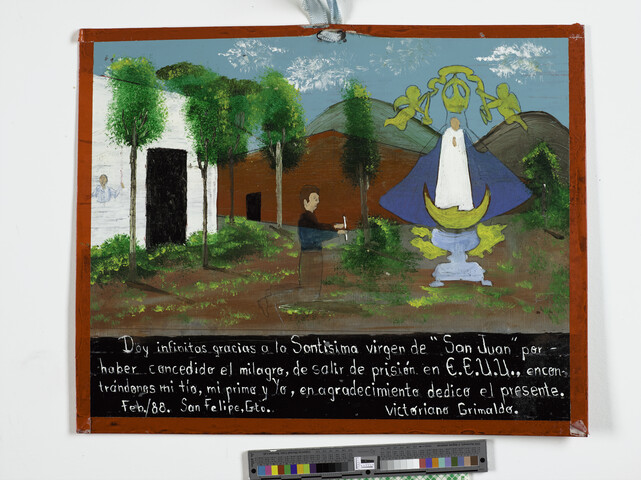 Doy infinitas gracias a la Santisima virgen de "San Juan" por -
haber concedido el milagro, de salir de prisión en E.E.U.U., encon-
trándonos mi tío, mi primo y Yo, en agradecimiento dedico el presente.
Feb./88. San Felipe, Gto. Victoriano Grimaldo.